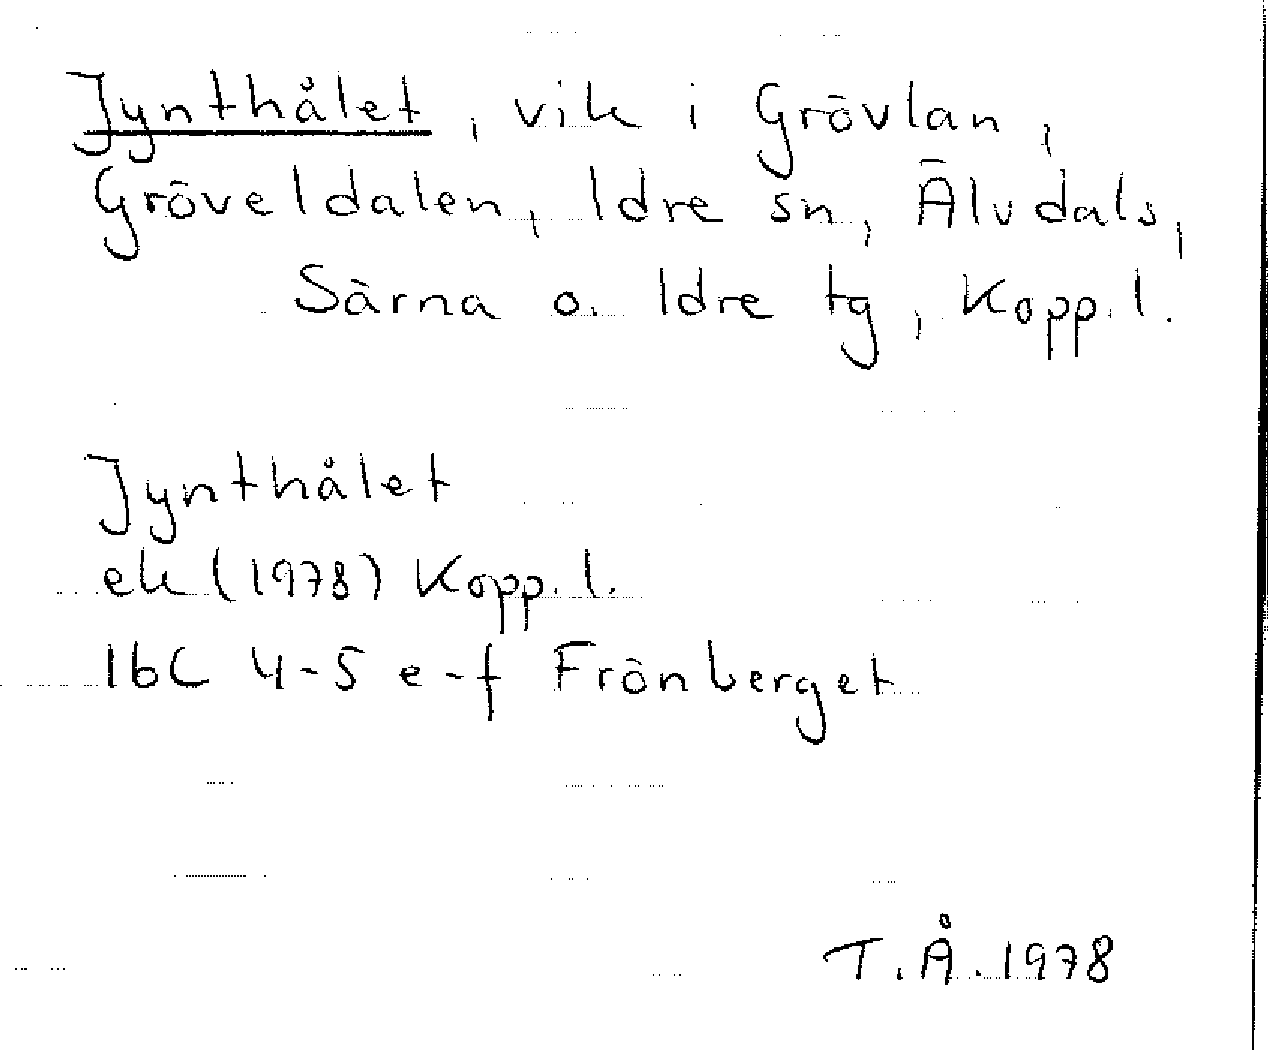 Jynthålet, vik i Grövlan,
Gröveldalen, Idre sn, Älvdals,
Särna o. Idre tg, Kopp. l.
Jynthålet
ek (1978) Kopp. l.
16C 4-5 e-f Frönberget
T.Å. 1978